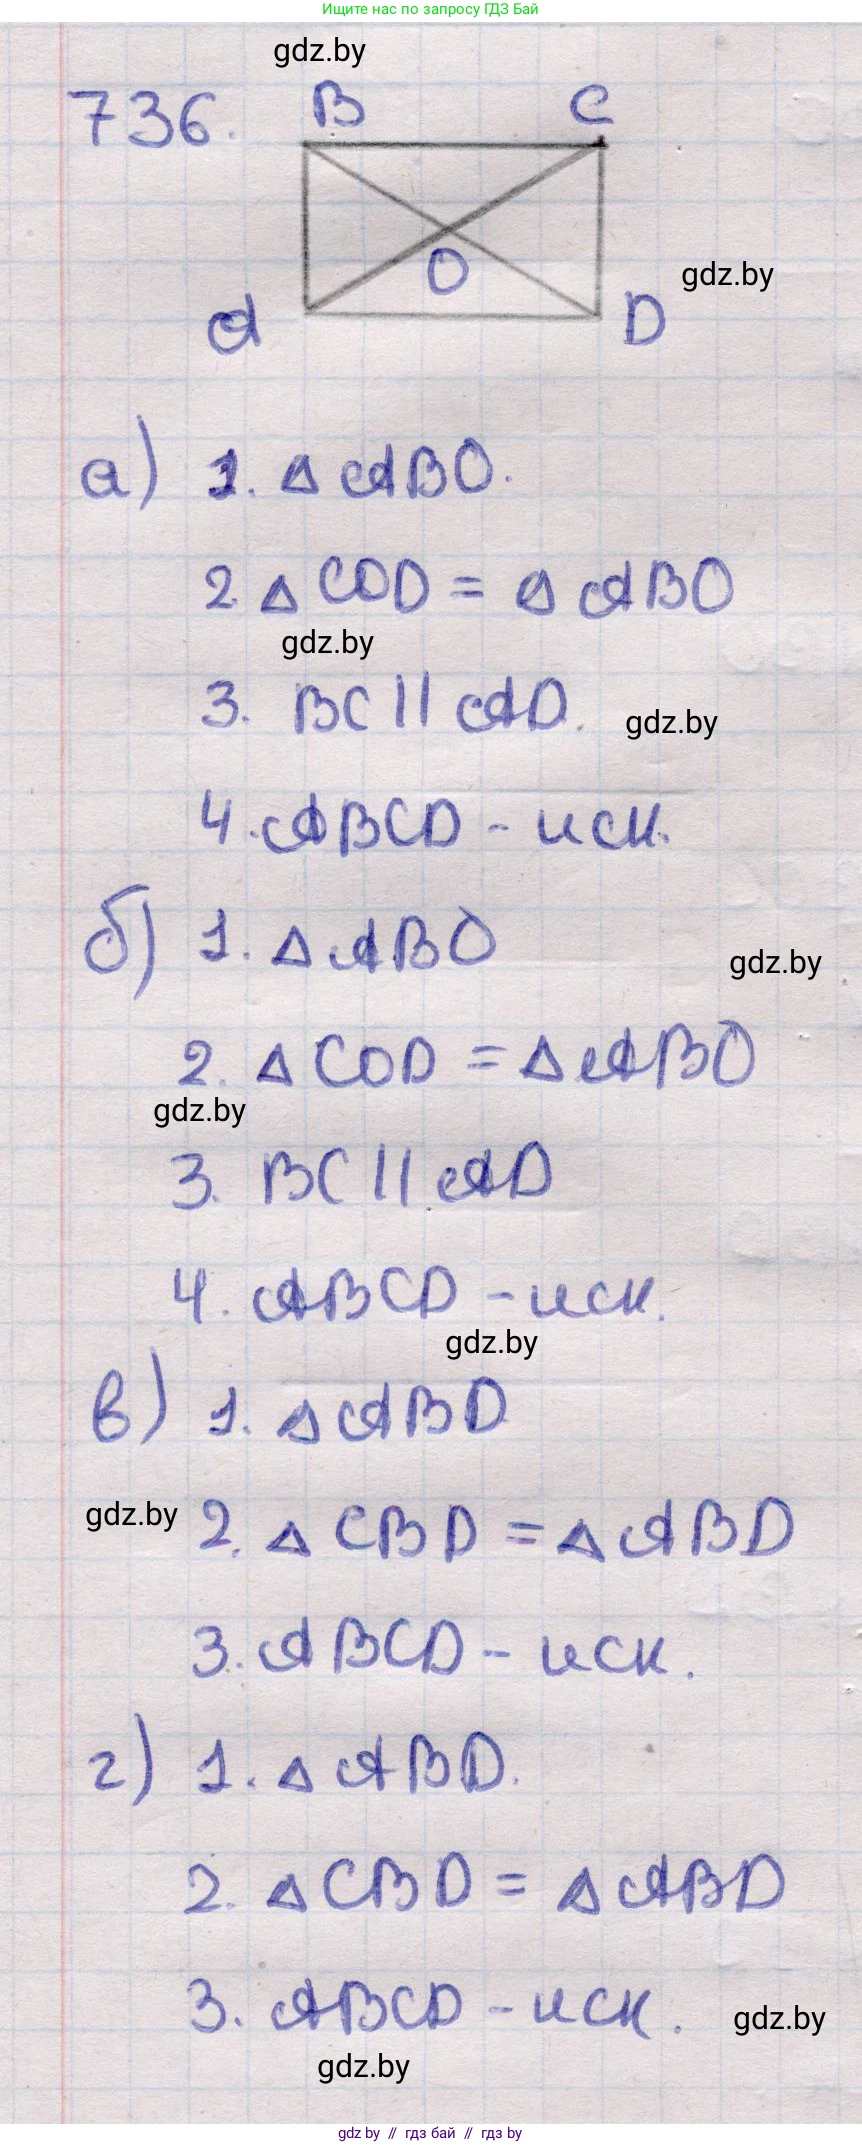 Ищите нас по запросу ГДЗ Бай
gdz.by
736.
B C
O
gdz.by
A D
а) 1. Δ ABO.
2. Δ COD = Δ ABO
gdz.by
3. BC || AD.
gdz.by
4. ABCD - иск.
б) 1. Δ ABO
gdz.by
2. Δ COD = Δ ABO
gdz.by
3. BC || AD
4. ABCD - иск.
gdz.by
в) 1. Δ ABD
gdz.by
2. Δ CBD = Δ ABD
3. ABCD - иск.
г) 1. Δ ABD.
2. Δ CBD = Δ ABD
3. ABCD - иск.
gdz.by
gdz.by
gdz.by // гдз бай // гдз by